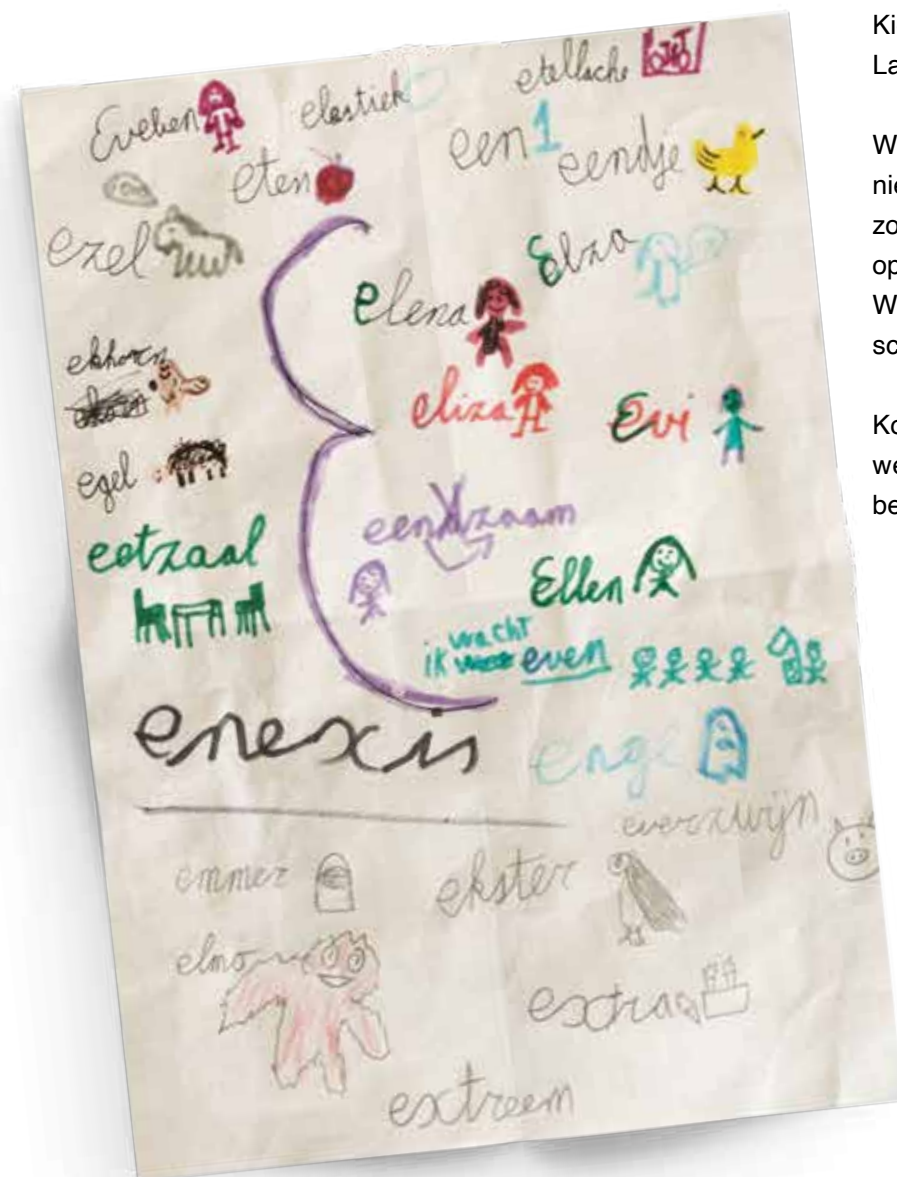 elastiek
eten
een 1
eendje
ezel
Elza
elena
ekhorn
eliza
Evi
egel
eenzaam
eetzaal
Ellen
ik wacht even
enexis
enge
everzwijn
emmer
ekster
elmo
extra
extreem
Ki
La
W
nie
zo
op
W
sc
Ko
we
be